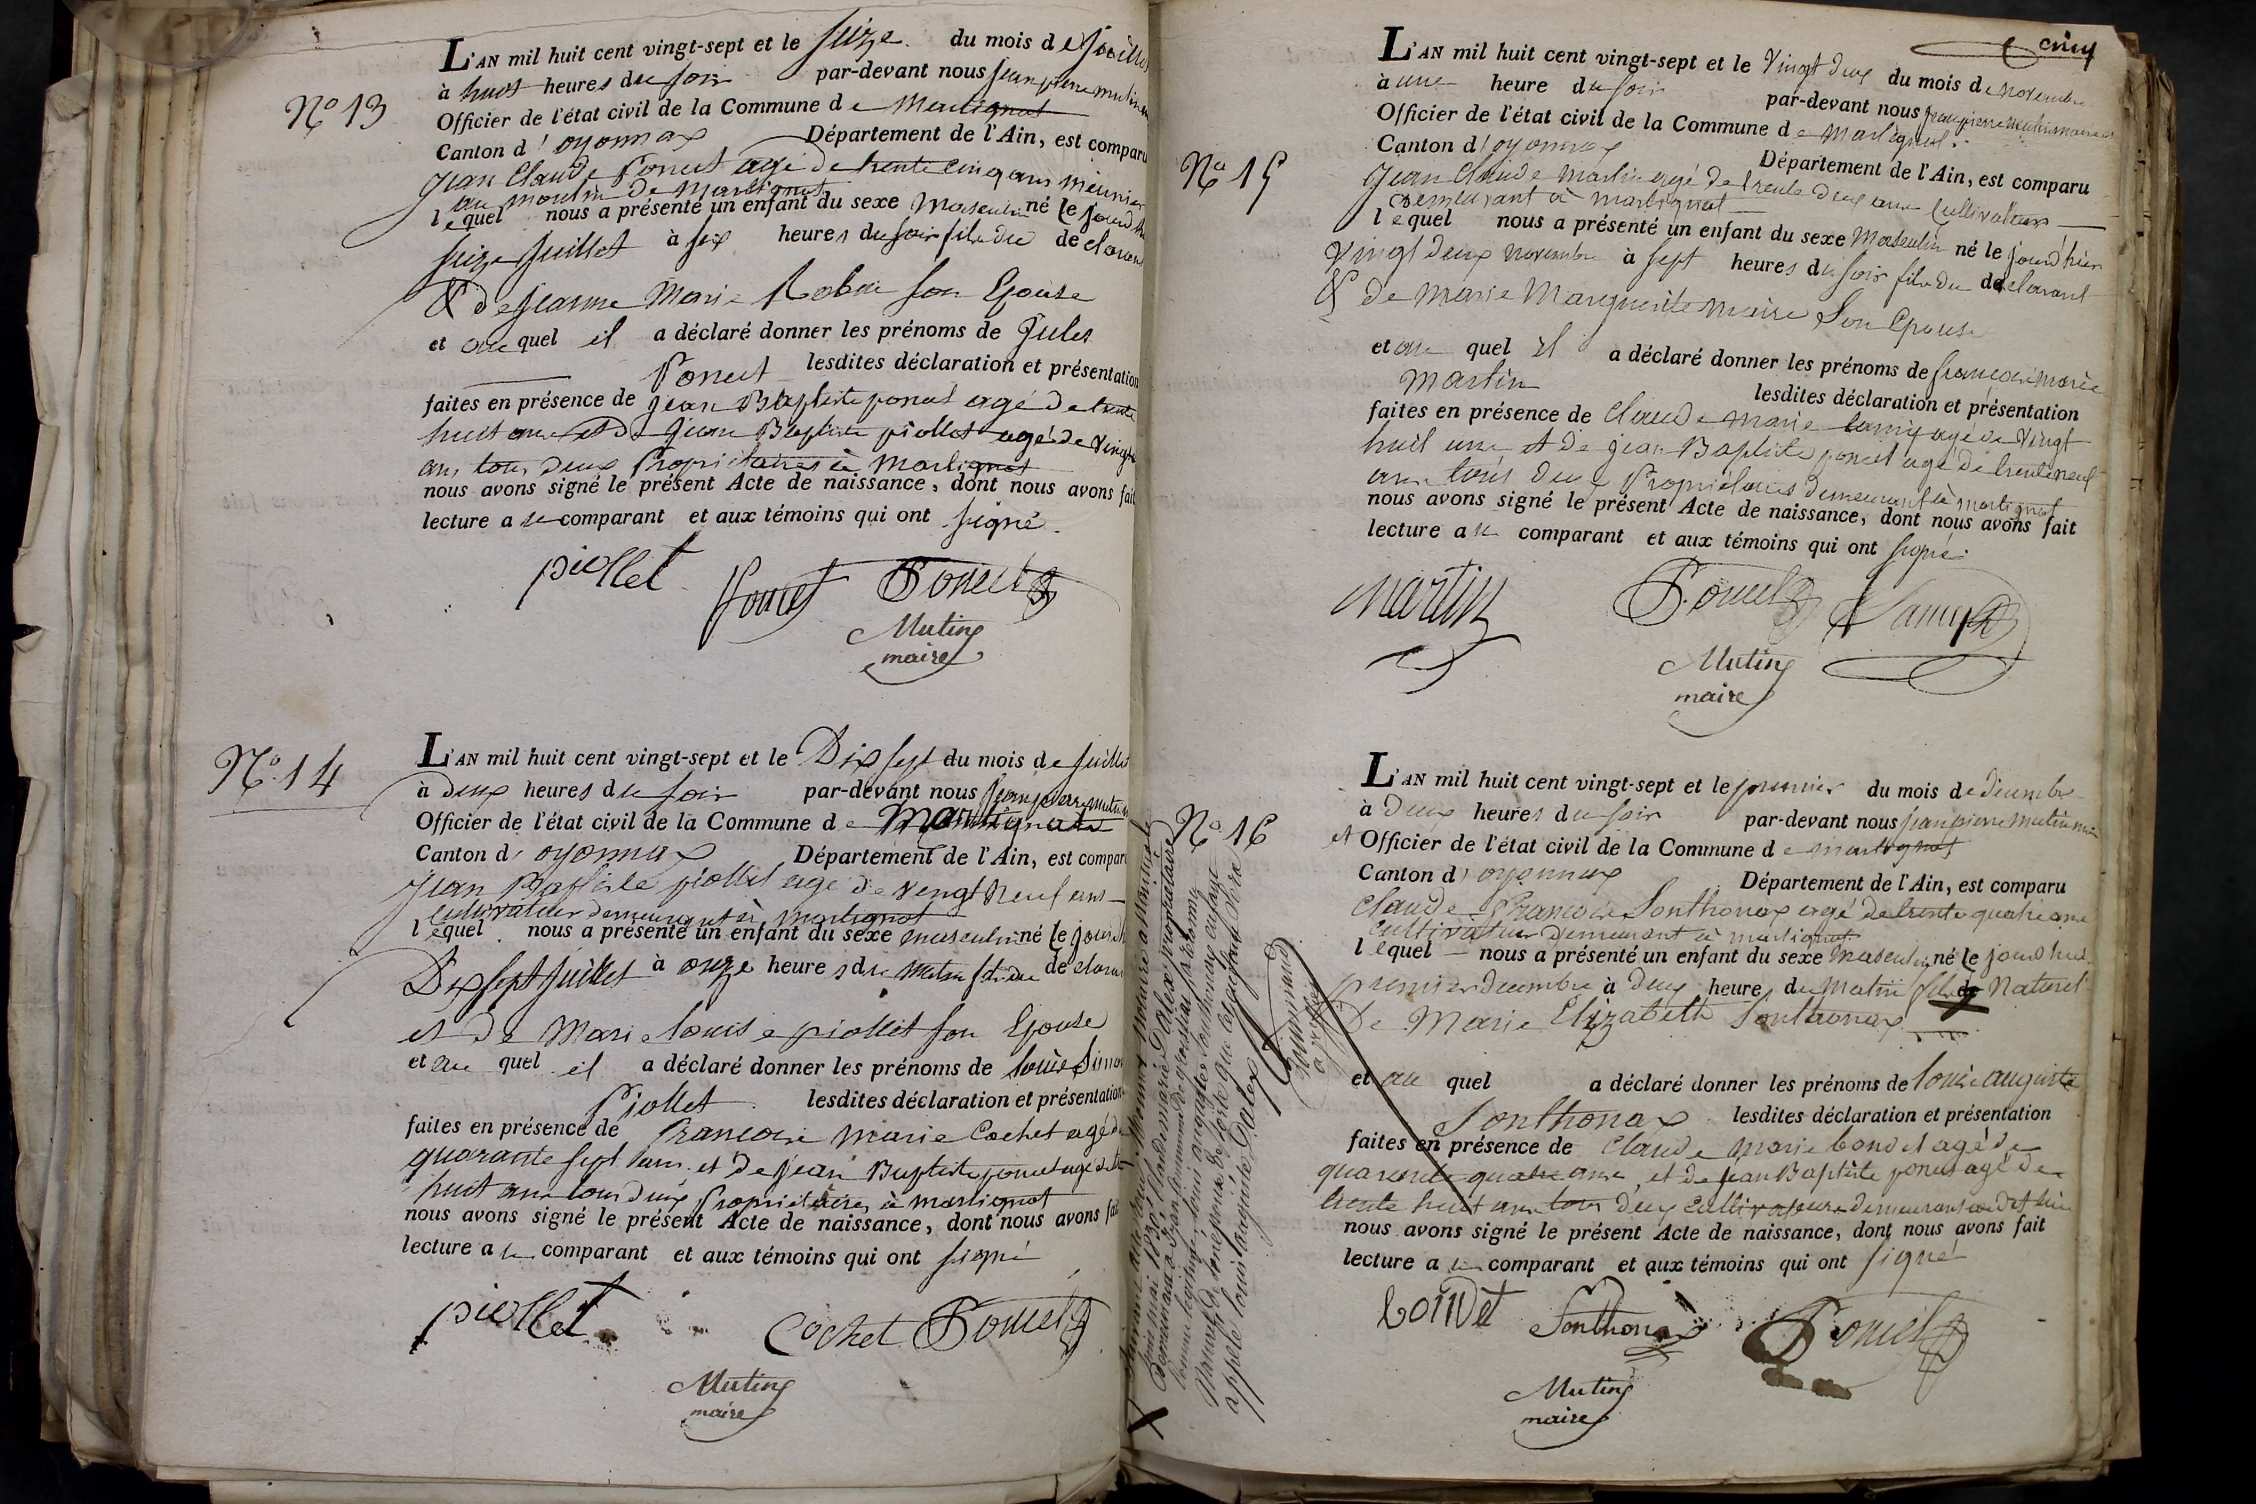 N° 13
L'AN mil huit cent vingt-sept et le seize du mois de Juillet
à huit heures du soir par-devant nous jean pierre mutin
Officier de l'état civil de la Commune de Martignat
Canton d'oyonnax Département de l'Ain, est comparu
Jean Claude Poncet agé de trente cinq ans meunier
au moulin de Martignat
lequel nous a présenté un enfant du sexe Masculin né le jourd'hui
seize Juillet à six heures du soir fils du declarant
& de jeanne Marie Son Epouse
et au quel il a déclaré donner les prénoms de Jules
Poncet lesdites déclaration et présentation
faites en présence de jean Baptiste poncet agé de trente
huit ans et de jean Baptiste piollet agé de vingt
ans tous deux Propriétaires à Martignat
nous avons signé le présent Acte de naissance, dont nous avons fait
lecture a le comparant et aux témoins qui ont signé.
piollet Poncet Poncet
Mutin
maire
N° 14
L'AN mil huit cent vingt-sept et le Dix sept du mois de juillet
à deux heures du soir par-devant nous jean pierre mutin
Officier de l'état civil de la Commune de Martignat
Canton d'oyonnax Département de l'Ain, est comparu
Jean Baptiste piollet agé de vingt neuf ans
cultivateur demeurant à martignat
lequel nous a présenté un enfant du sexe masculin né le jourd'hui
Dix sept juillet à onze heures du matin fils du declarant
et de Marie louise piollet son Epouse
et au quel il a déclaré donner les prénoms de louis Simon
Piollet lesdites déclaration et présentation
faites en présence de françois marie Cochet agé de
quarante sept ans et de jean Baptiste poncet agé de trente
huit ans tous deux Propriétaires à martignat
nous avons signé le présent Acte de naissance, dont nous avons fait
lecture a le comparant et aux témoins qui ont signé
piollet Cochet Poncet
Mutin
maire
cinq
N° 15
L'AN mil huit cent vingt-sept et le vingt deux du mois de novembre
à une heure du soir par-devant nous jean pierre mutin maire et
Officier de l'état civil de la Commune de Martignat.
Canton d'oyonnax Département de l'Ain, est comparu
Jean Claude Martin agé de trente deux ans Cultivateur
demeurant à martignat
lequel nous a présenté un enfant du sexe Masculin né le jourd'hier
vingt deux novembre à sept heures du soir fils du declarant
& de Marie Marguerite maire Son Epouse
et au quel il a déclaré donner les prénoms de françois marie
Martin lesdites déclaration et présentation
faites en présence de Claude Marie lamy agé de vingt
huit ans et de jean Baptiste poncet agé de trente neuf
ans tous deux Propriétaires demeurant à martignat
nous avons signé le présent Acte de naissance, dont nous avons fait
lecture a le comparant et aux témoins qui ont signé.
Martin Poncet Lamy
Mutin
maire
N° 16
L'AN mil huit cent vingt-sept et le premier du mois de decembre
à deux heures du soir par-devant nous jean pierre mutin maire
et Officier de l'état civil de la Commune de martignat
Canton d'oyonnax Département de l'Ain, est comparu
Claude françois Sonthonax agé de trente quatre ans
cultivateur demeurant à martignat
lequel nous a présenté un enfant du sexe masculin né le jourd'hui
premier decembre à deux heures du matin fils de Naturel
De Marie Elizabeth Sonthonax
et au quel a déclaré donner les prénoms de louis auguste
Sonthonax lesdites déclaration et présentation
faites en présence de Claude Marie bondet agé de
quarante quatre ans, et de jean Baptiste poncet agé de
trente huit ans tous deux Cultivateurs demeurant
nous avons signé le présent Acte de naissance, dont nous avons fait
lecture a le comparant et aux témoins qui ont signé
bondet Sonthonax Poncet
Mutin
maire
appelé louis auguste Dalex